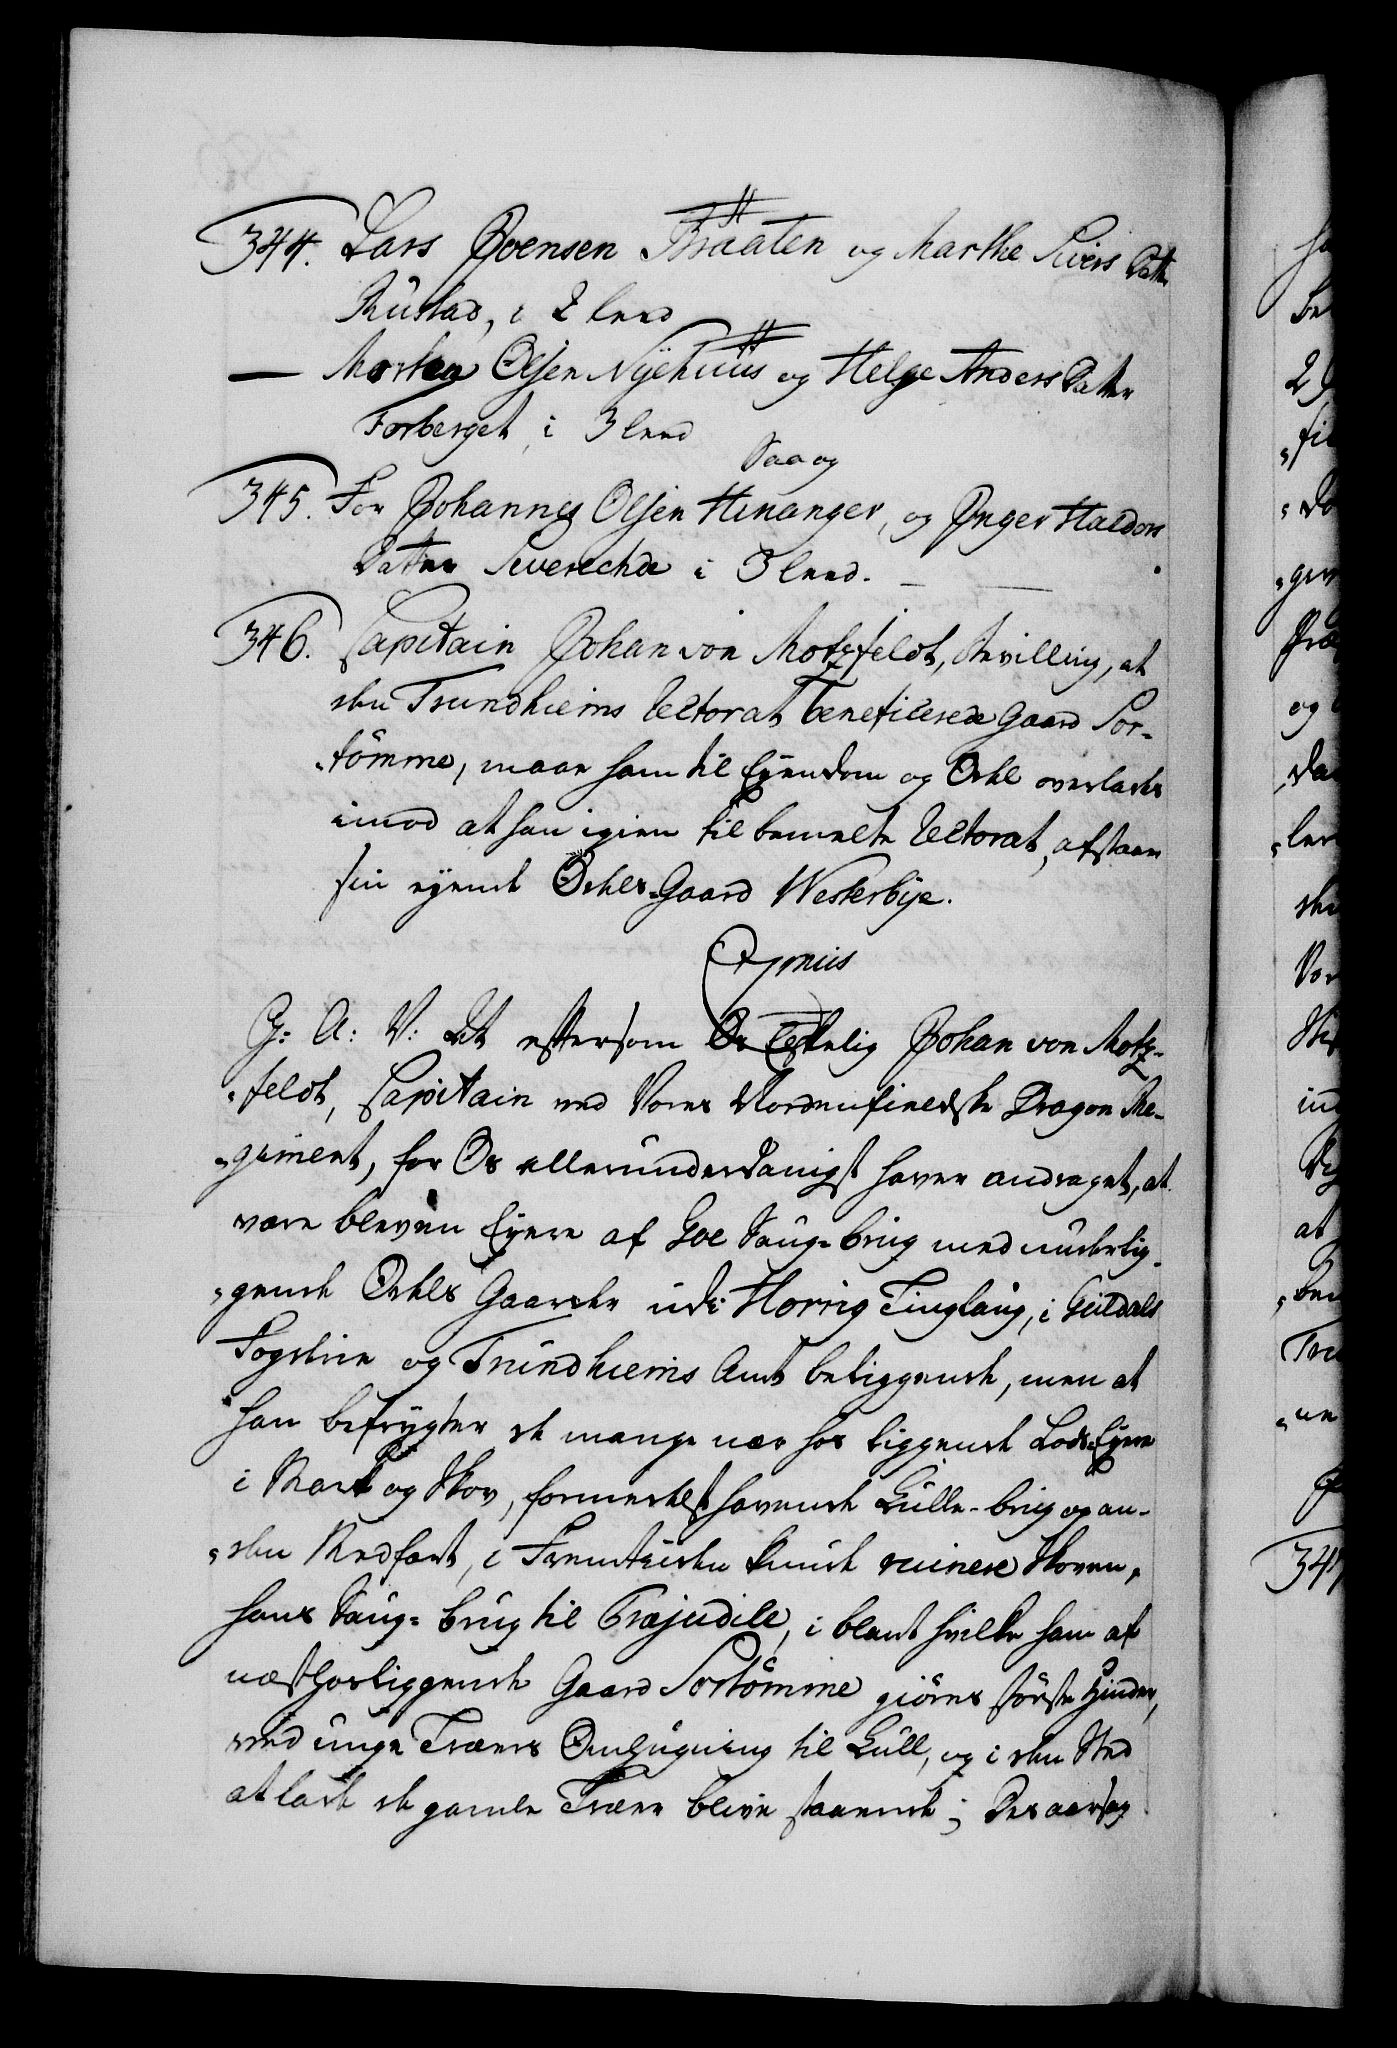 344. Lars Joensen Braaten og Marthe Sivers Datter
Rustad, i 2 leed
— Morten Olsen Nyehuus og Helge Anders Datter
Forberget i 3 leed
Saa og
345. For Johannes Olsen Henanger, og Inger Haldors
Datter i 3 leed.
346. Capitain Johan von Motzfeldt, Bevilling, at
den Trundhiems Lectorat beneficerede Gaard Sor-
„tömme, maae ham til Eyendom og Odel overlades
imod at han igien til bemelte Lectorat, afstaaer
sin eyende Odels-Gaard Westerbye.
G: A: V: At eftersom Os Elskelig Johan von Motz-
„feldt, Capitain ved Vores Nordenfieldske Dragon Re-
„giment, for Os allerunderdanigst haver andraget, at
være bleven Eyere af Goe Saug-brug med underlig-
„gende Odels Gaarde udi Horrig Tinglaug, i Guldals
Fogderie og Trundhiems Amt beliggende, men at
han befrygter de mange nær hos liggende Lods-Eyere
i Mark og Skov, formedelst havende Kulle-brug og an-
„den Medfart, i Fremtiden kunde ruinere Skoven,
hans Saug-brug til Præjudice, i blant hvilke ham af
næsthosliggende Gaard Sortömme giöres störste Hinder,
ved unge Træers Omhugning til Kull, og i den Sted
at lade de gamle Træer blive staaende; Des aarsag